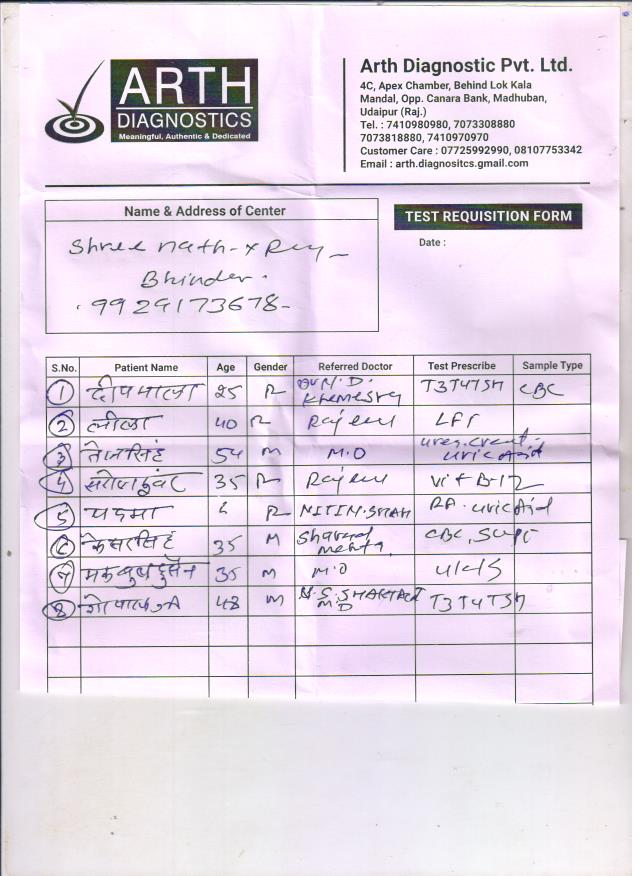 ARTH
DIAGNOSTICS
Meaningful, Authentic & Dedicated
Arth Diagnostic Pvt. Ltd.
4C, Apex Chamber, Behind Lok Kala
Mandal, Opp. Canara Bank, Madhuban,
Udaipur (Raj.)
Tel. : 7410980980, 7073308880
7073818880, 7410970970
Customer Care : 07725992990, 08107753342
Email : arth.diagnositcs.gmail.com
Name & Address of Center
Shree nath
Bhinder.
9929173678
TEST REQUISITION FORM
Date :
S.No. Patient Name Age Gender Referred Doctor Test Prescribe Sample Type
1 दीपमाला 25 T3T4TSH CBC
2 लीला 40 LFT
3 तेजसिंह 54 M M.D uric Acid
4 35 Vit B-12
5 पदमा NITIN.SHAH RA. uric Acid
6 केसरसिंह 35 M Sharad mehta CBC,
7 मकबुल हुसैन 35 M M.D
8 48 M N.S. M.D T3T4TSH